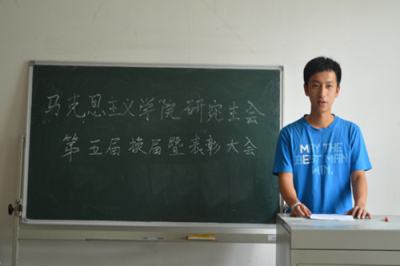 马克思主义学院研究生会
第五届换届暨表彰大会
MAY THE
BEST MAN
WIN.